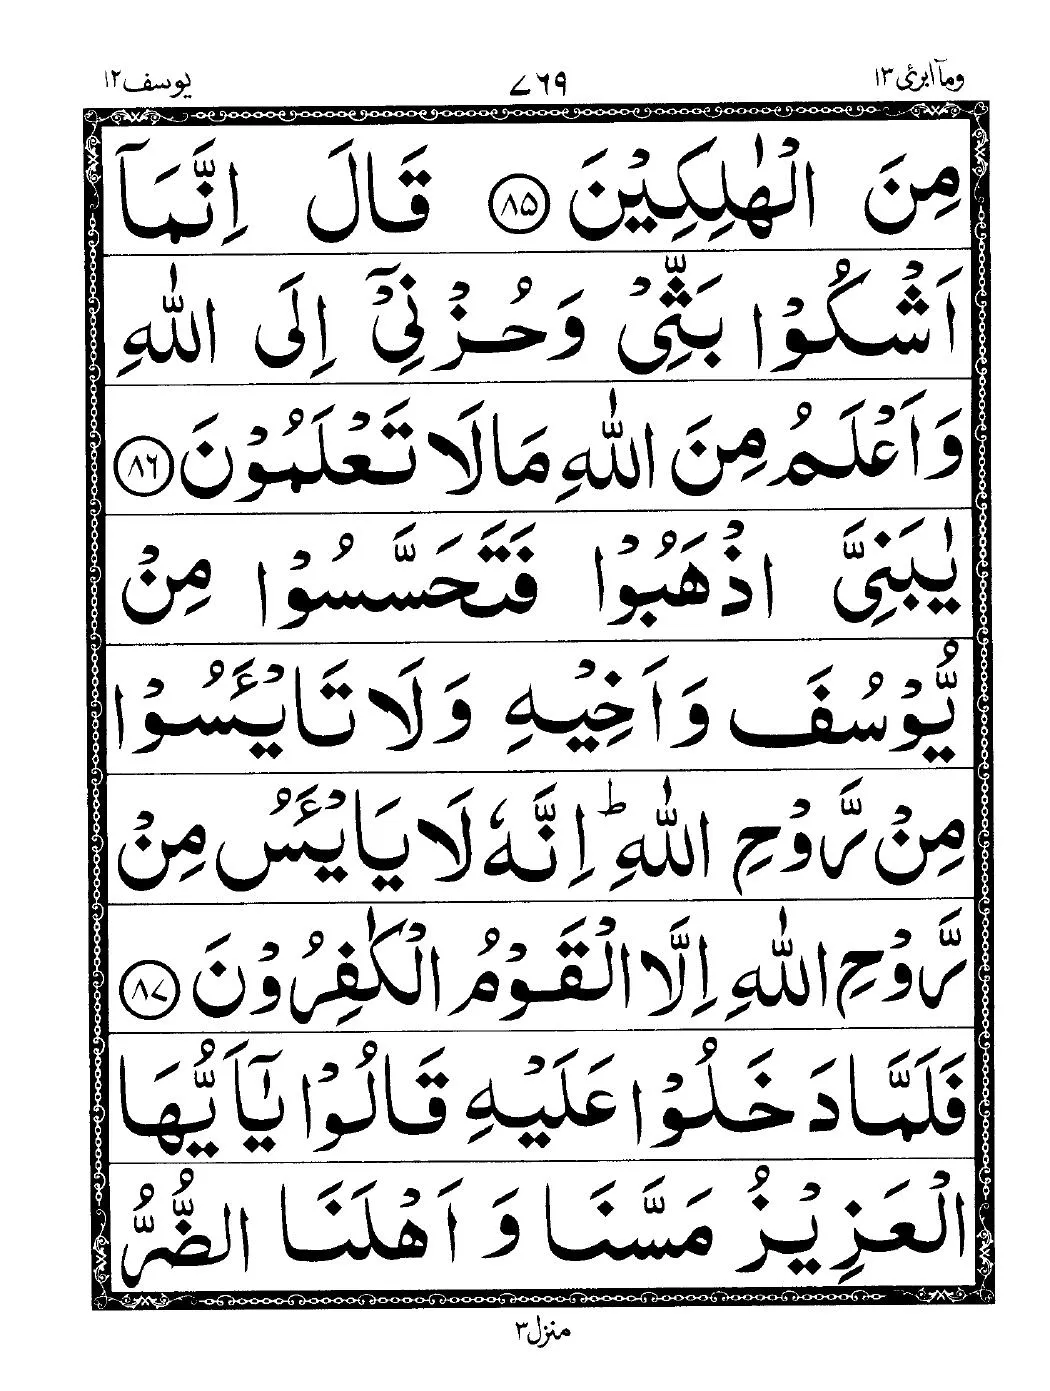 وماۤ ابرئ ١٣
٧٦٩
يوسف ١٢
مِنَ الْهٰلِكِيْنَ ﴿۸۵﴾ قَالَ اِنَّمَاۤ
اَشْكُوْا بَثِّيْ وَحُزْنِيْۤ اِلَى اللّٰهِ
وَاَعْلَمُ مِنَ اللّٰهِ مَا لَا تَعْلَمُوْنَ ﴿۸۶﴾
يٰبَنِيَّ اذْهَبُوْا فَتَحَسَّسُوْا مِنْ
يُّوْسُفَ وَاَخِيْهِ وَلَا تَايْـَٔسُوْا
مِنْ رَّوْحِ اللّٰهِ ؕ اِنَّهٗ لَا يَايْـَٔسُ مِنْ
رَّوْحِ اللّٰهِ اِلَّا الْقَوْمُ الْكٰفِرُوْنَ ﴿۸۷﴾
فَلَمَّا دَخَلُوْا عَلَيْهِ قَالُوْا يٰۤاَيُّهَا
الْعَزِيْزُ مَسَّنَا وَ اَهْلَنَا الضُّرُّ
منزل ٣